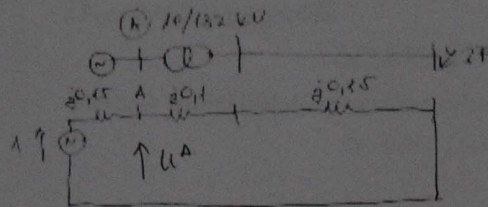 A 10/132 kV
~
j0,15 A j0,1 j0,25
1 ~
U^A